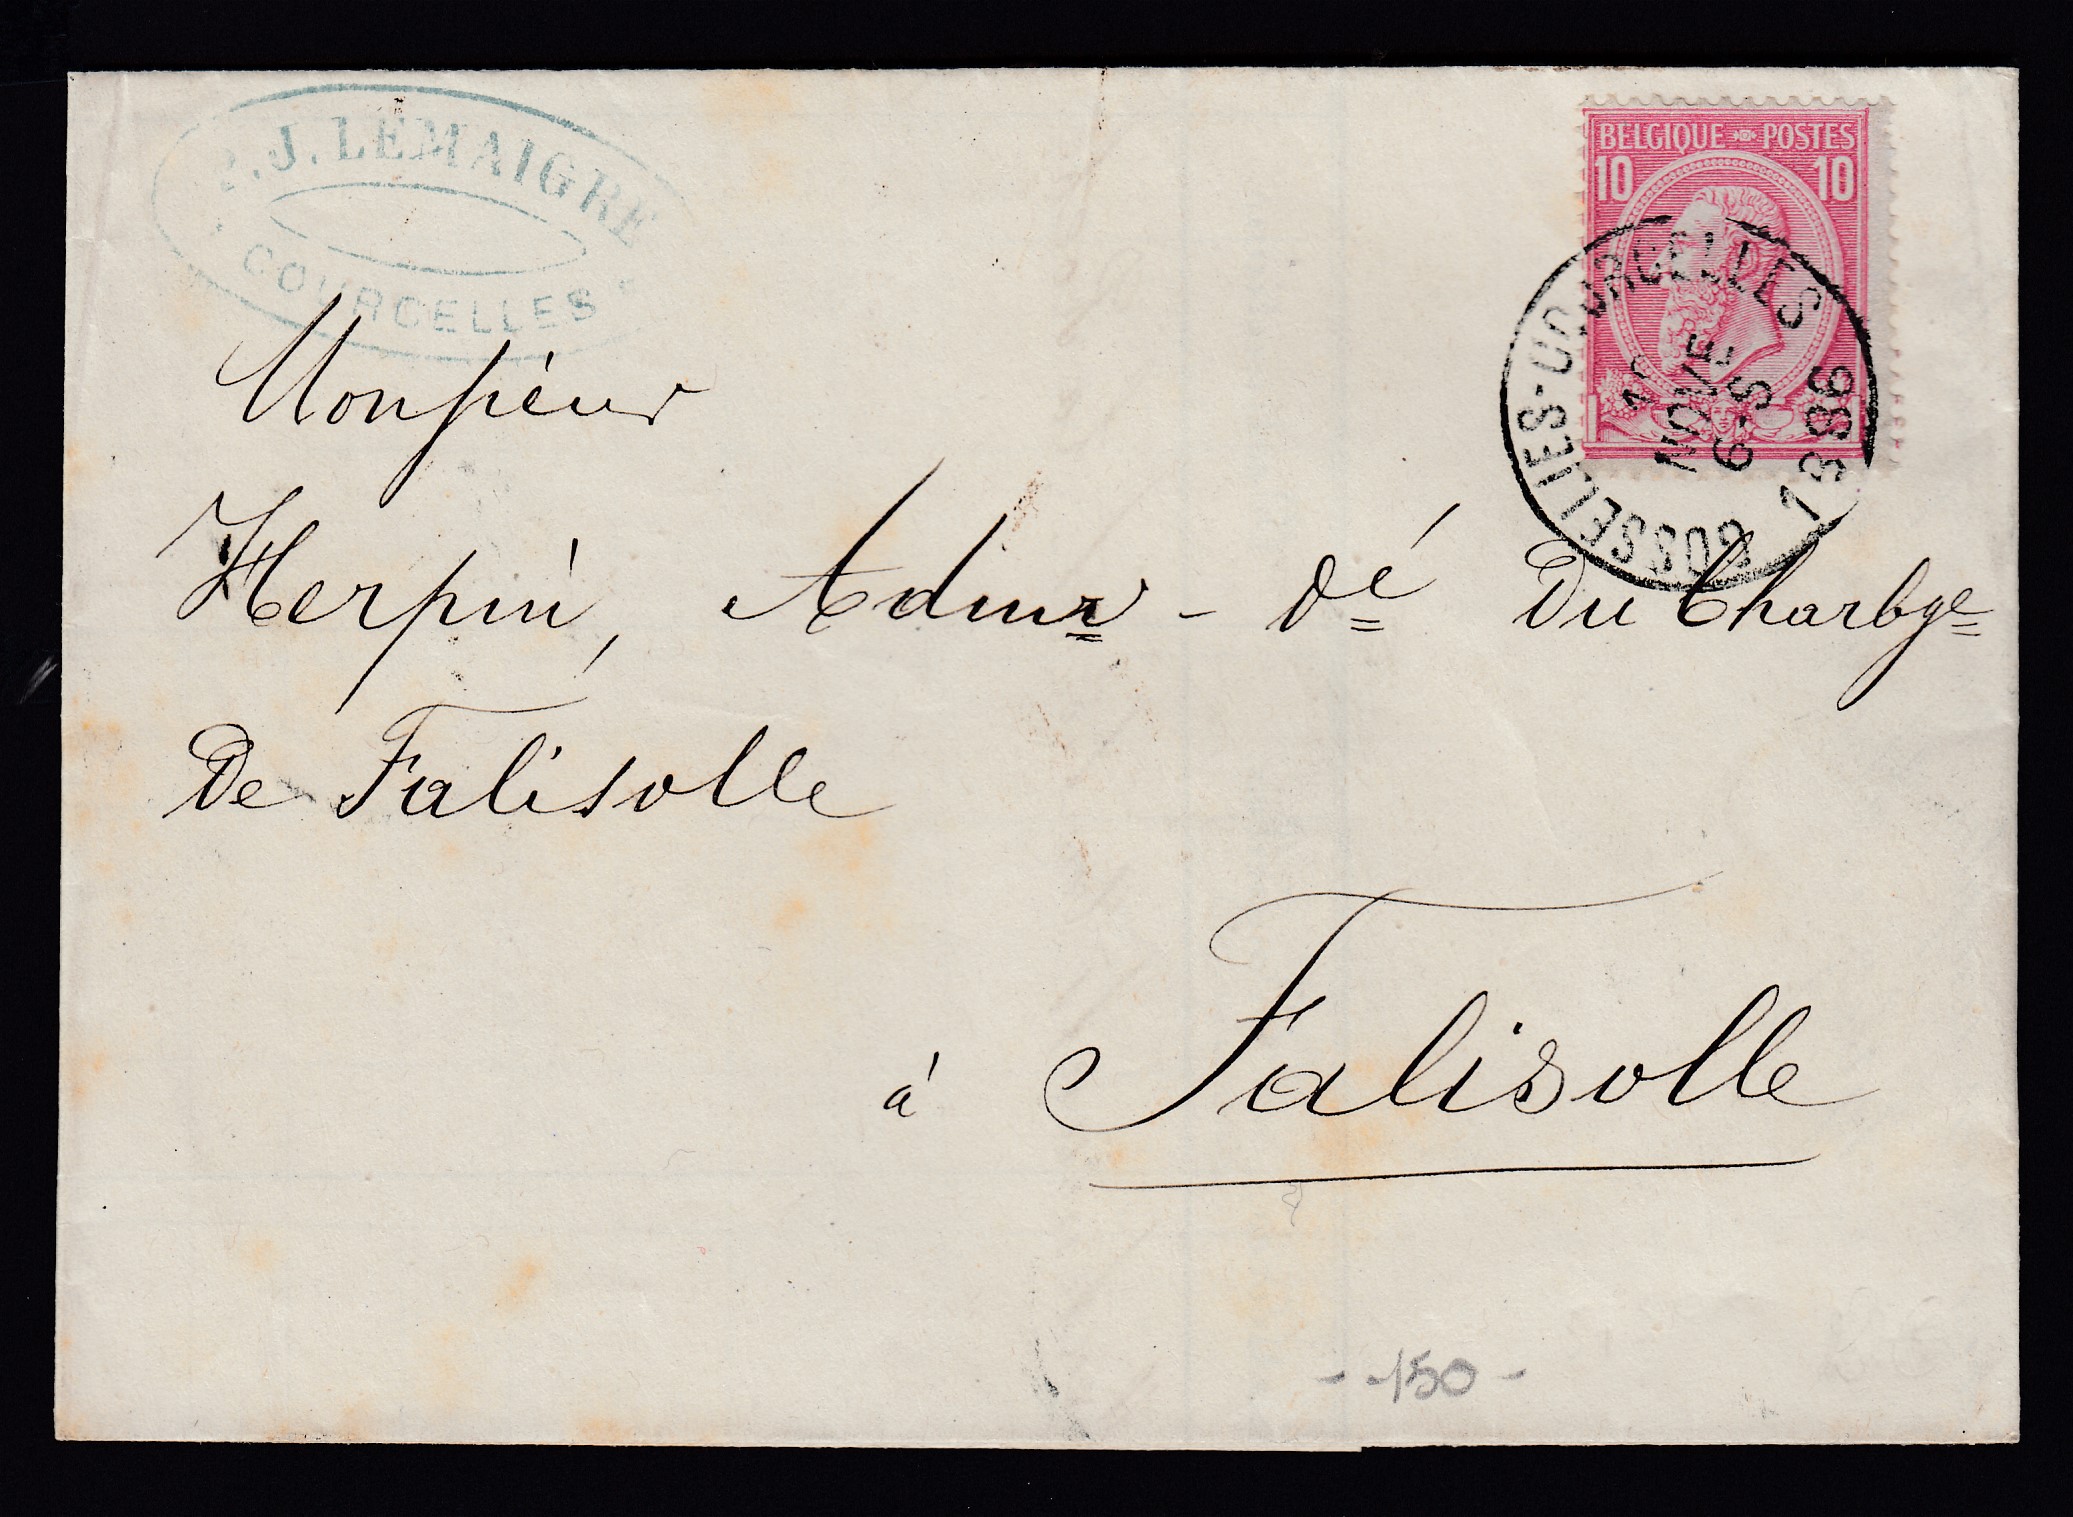 P.J. LEMAIGRE
COURCELLES
BELGIQUE POSTES
10 10
GOSSELIES-COURCELLES
NOVE
6-S
1886
Monsieur
Herpin, Admr - dé du Charbge
de Falisolle
à Falisolle
- -150 -